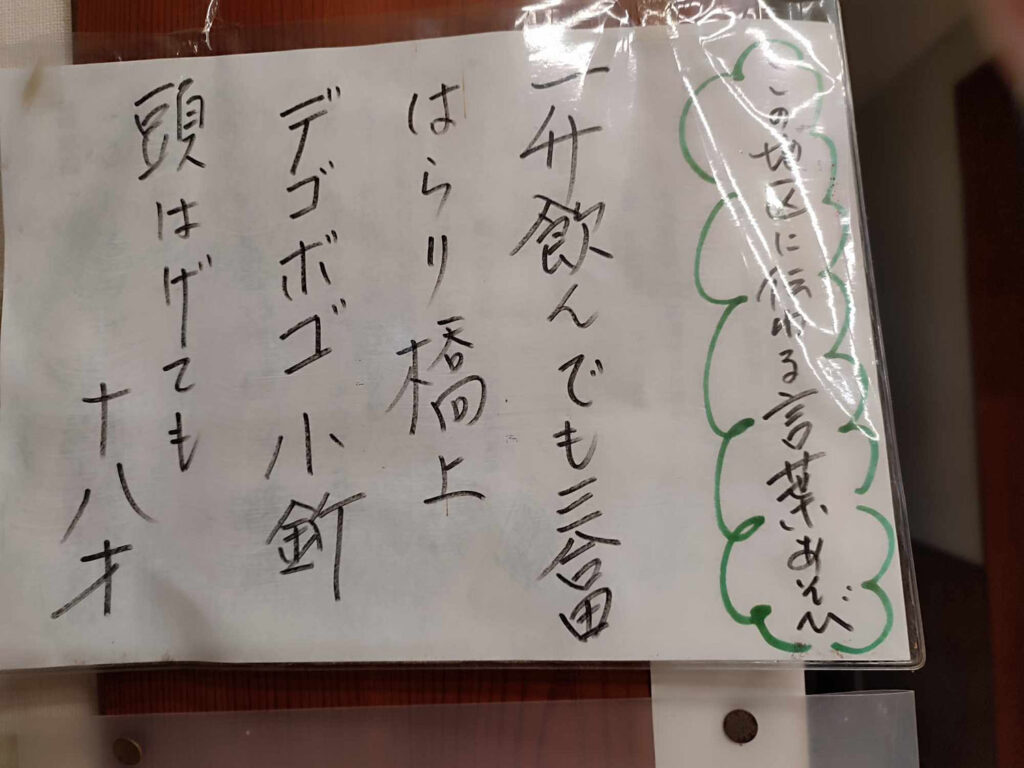 この地区に伝わる言葉あそび
一升飲んでも三合田
はらり橋上
デゴボゴ小釿
頭はげても
十八才